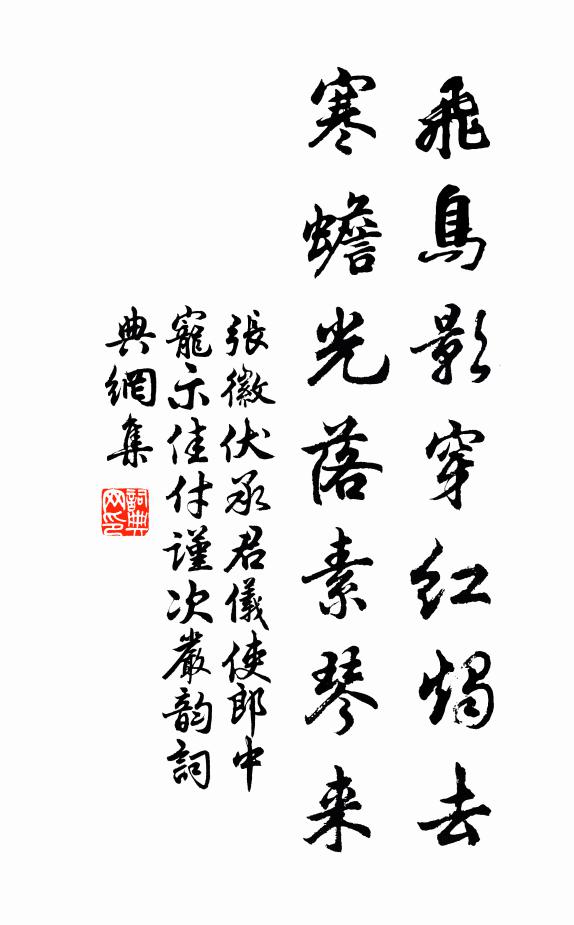 飛鳥影穿红燭去
寒蟾光落素琴来
張徽伏承君儀使郎中
寵示佳付謹次嚴韵詞
典網集
詞典网印